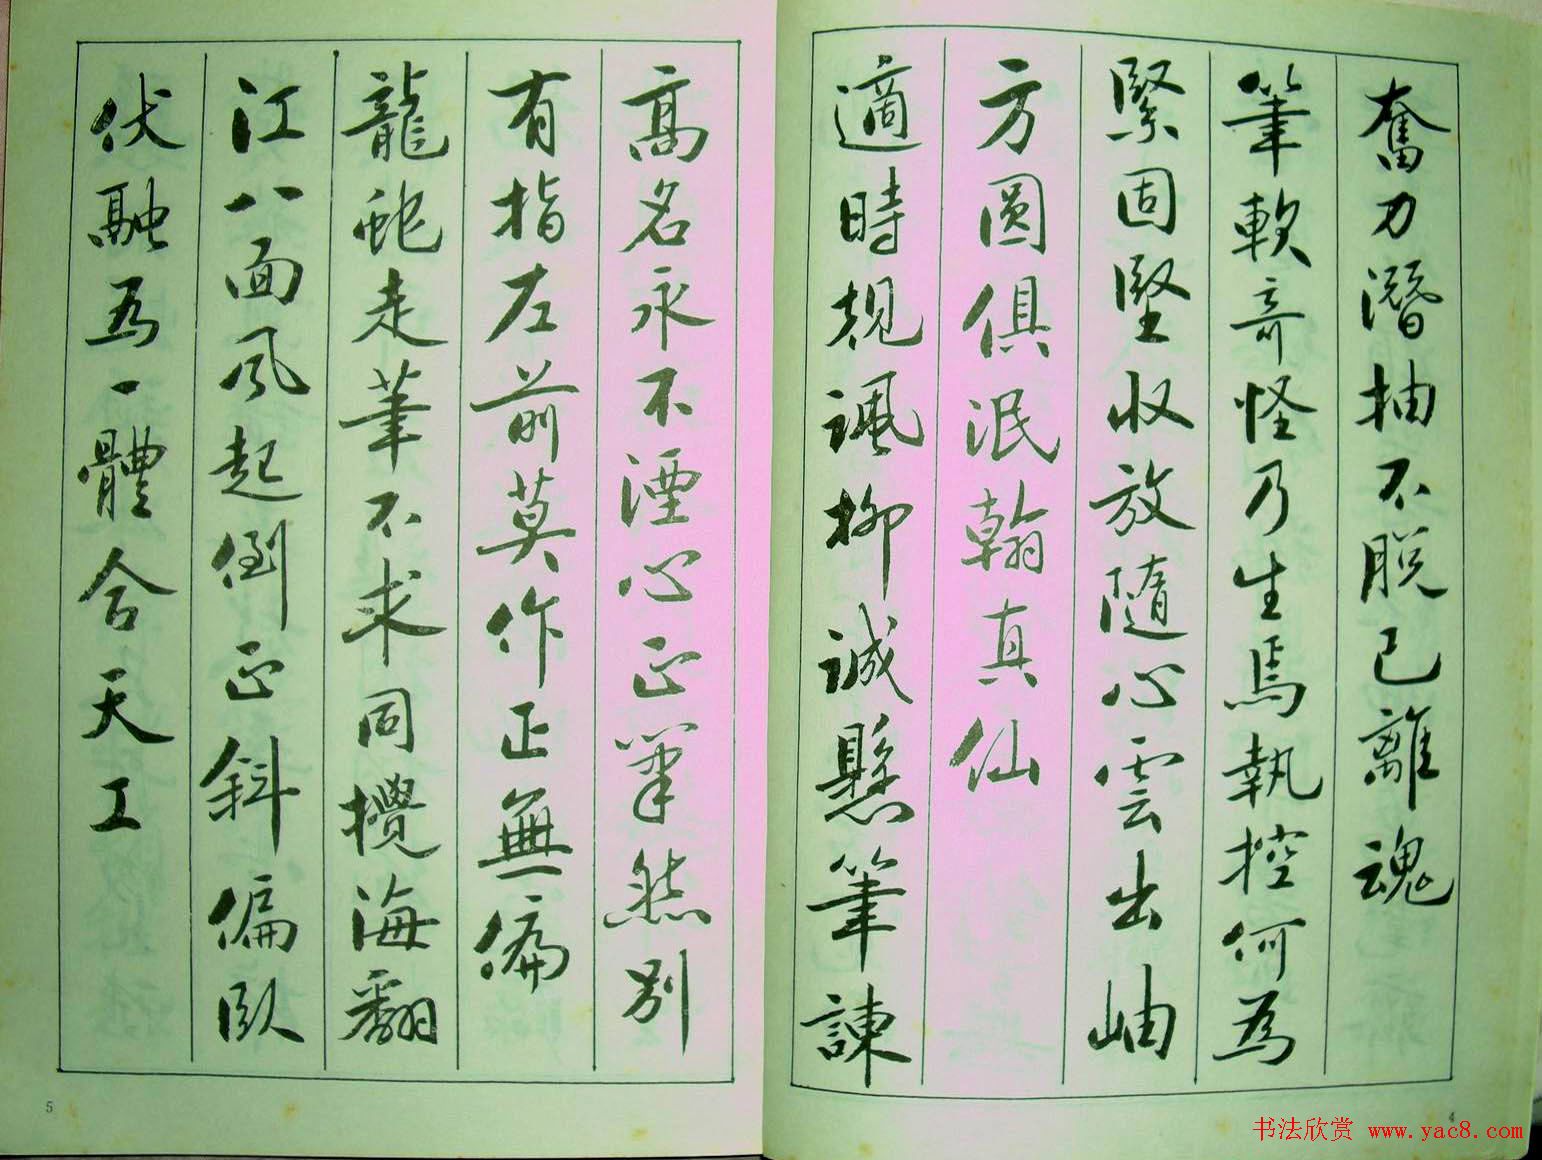 奮力潛抽不脫已離魂
筆軟奇怪乃生焉執控何為
緊固堅收放隨心雲出岫
方圓俱泯翰真仙
適時規諷柳誠懸筆諫
高名永不湮心正筆然別
有指左前莫作正無偏
龍蛇走筆不求同攪海翻
江八面風起倒正斜偏臥
伏融為一體合天工
5
4
书法欣赏 www.yac8.com